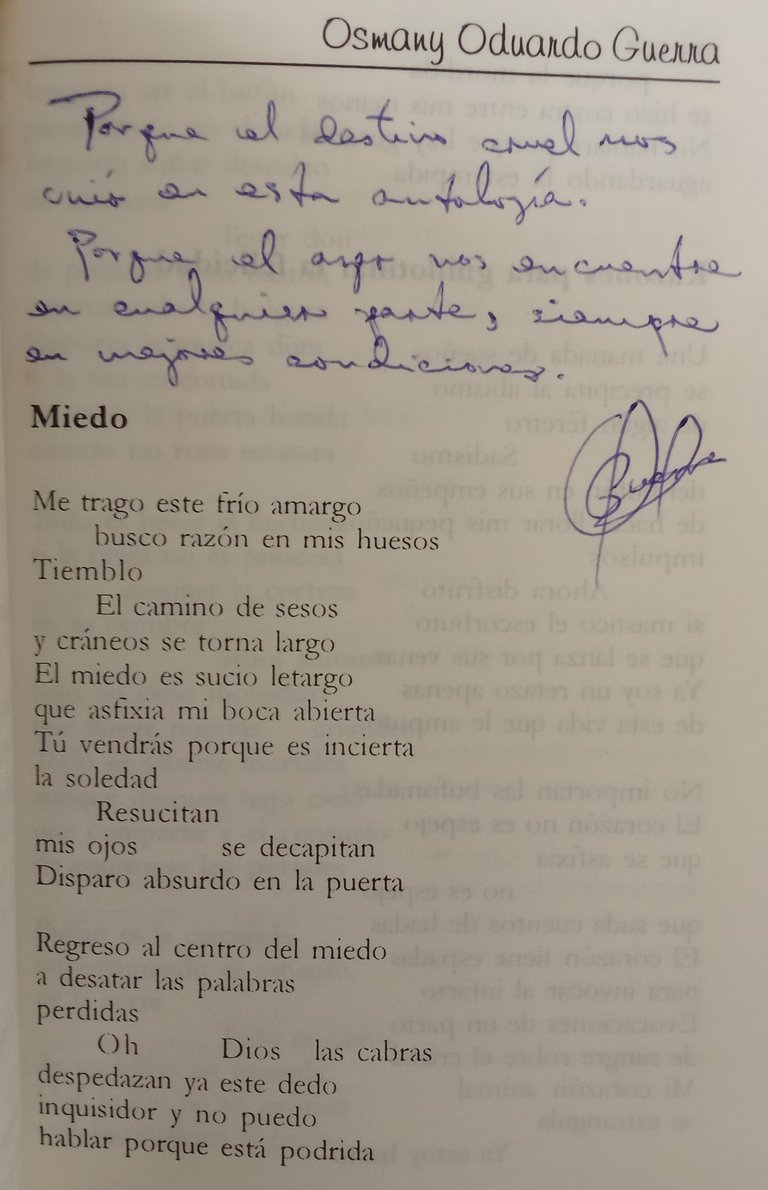 Osmany Oduardo Guerra
Porque el destino cruel nos
unió en esta antología.
Porque el azar nos encuentre
en cualquier parte, siempre
en mejores condiciones.
Miedo
Me trago este frío amargo
busco razón en mis huesos
Tiemblo
El camino de sesos
y cráneos se torna largo
El miedo es sucio letargo
que asfixia mi boca abierta
Tú vendrás porque es incierta
la soledad
Resucitan
mis ojos se decapitan
Disparo absurdo en la puerta
Regreso al centro del miedo
a desatar las palabras
perdidas
Oh Dios las cabras
despedazan ya este dedo
inquisidor y no puedo
hablar porque está podrida